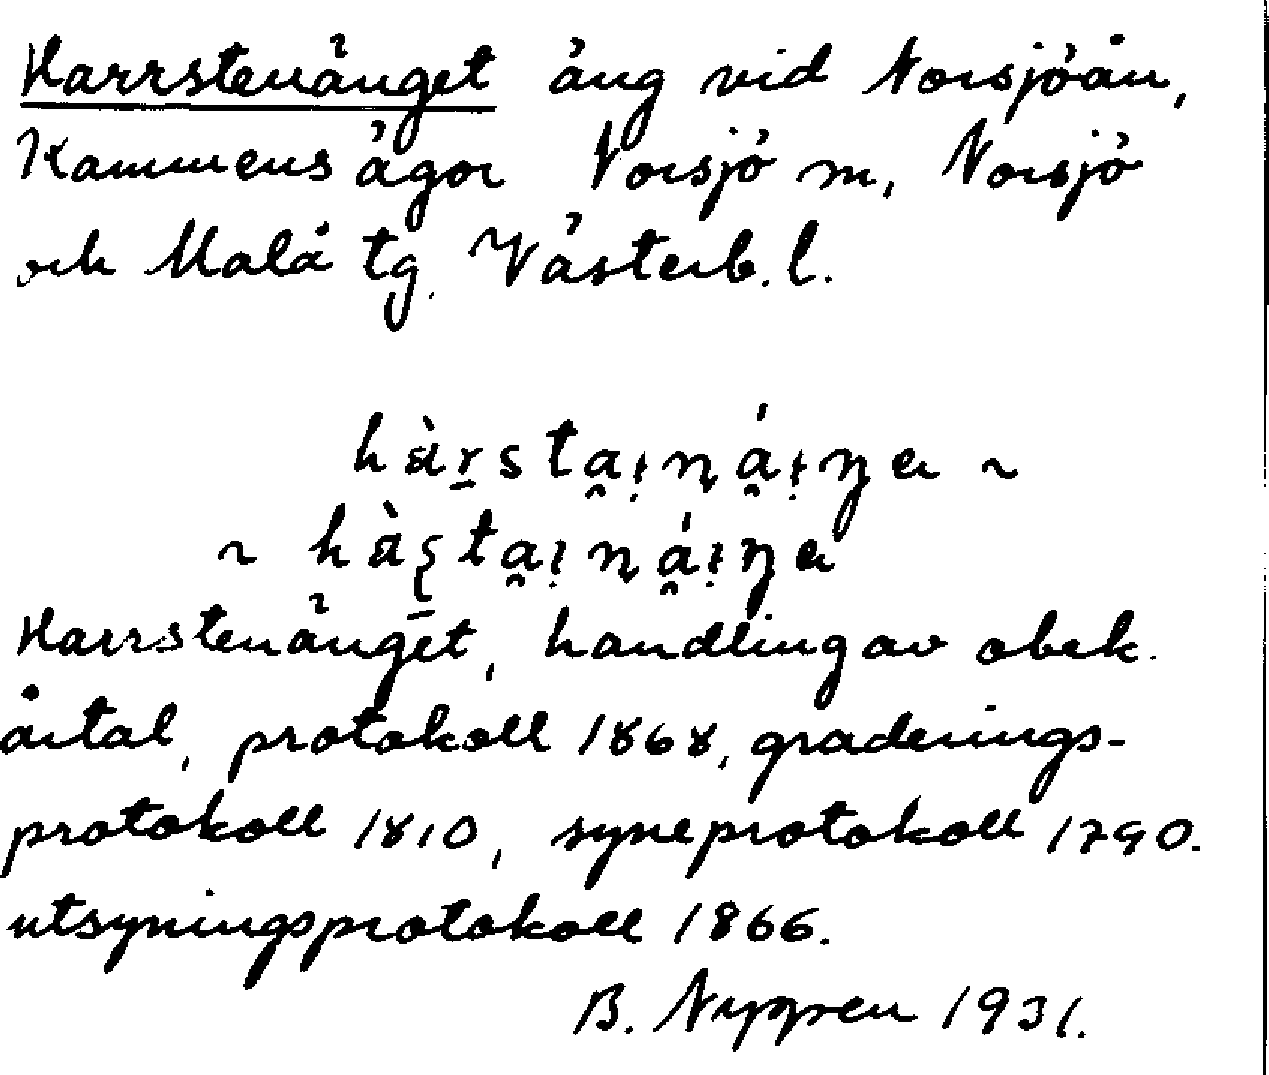 Harrstenänget äng vid Norsjöån,
Kammens ägor Norsjö m, Norsjö
och Malå tg. Västerb. l.
hàr̲sta̯ı̣ṇá̯ı̣ŋa ~
~ hàʂta̯ı̣ṇá̯ı̣ŋa
Harrstenänget, handling av obek.
årtal, protokoll 1868, graderings-
protokoll 1810, syneprotokoll 1790.
utsyningsprotokoll 1866.
B. Nygren 1931.